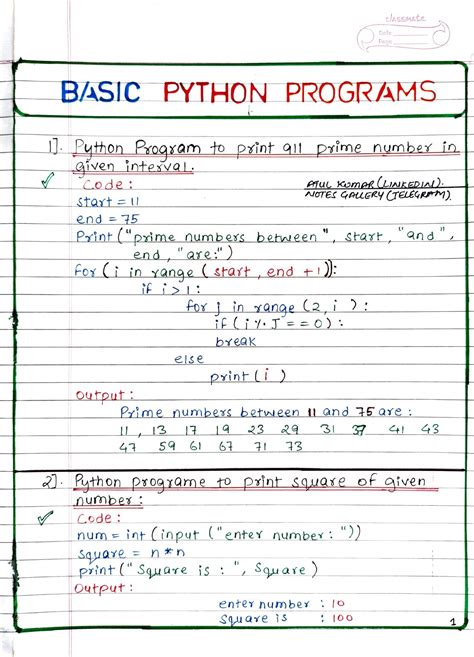 classmate
Date
Page
BASIC PYTHON PROGRAMS
1]. Python Program to print all prime number in
given interval.
Code :
ATUL KUMAR (LINKEDIN).
NOTES GALLERY (TELEGRAM).
start = 11
end = 75
Print ("prime numbers between", start, "and",
end, "are:")
For (i in range (start, end +1)):
if i > 1 :
for j in range (2, i ) :
if ( i % J == 0) :
break
else
print ( i )
output :
Prime numbers between 11 and 75 are :
11 , 13 17 19 23 29 31 37 41 43
47 59 61 67 71 73
2]. Python programe to print square of given
number :
Code :
num = int (input ("enter number : "))
square = n * n
print (" Square is : ", Square)
Output :
enter number : 10
square is : 100
1